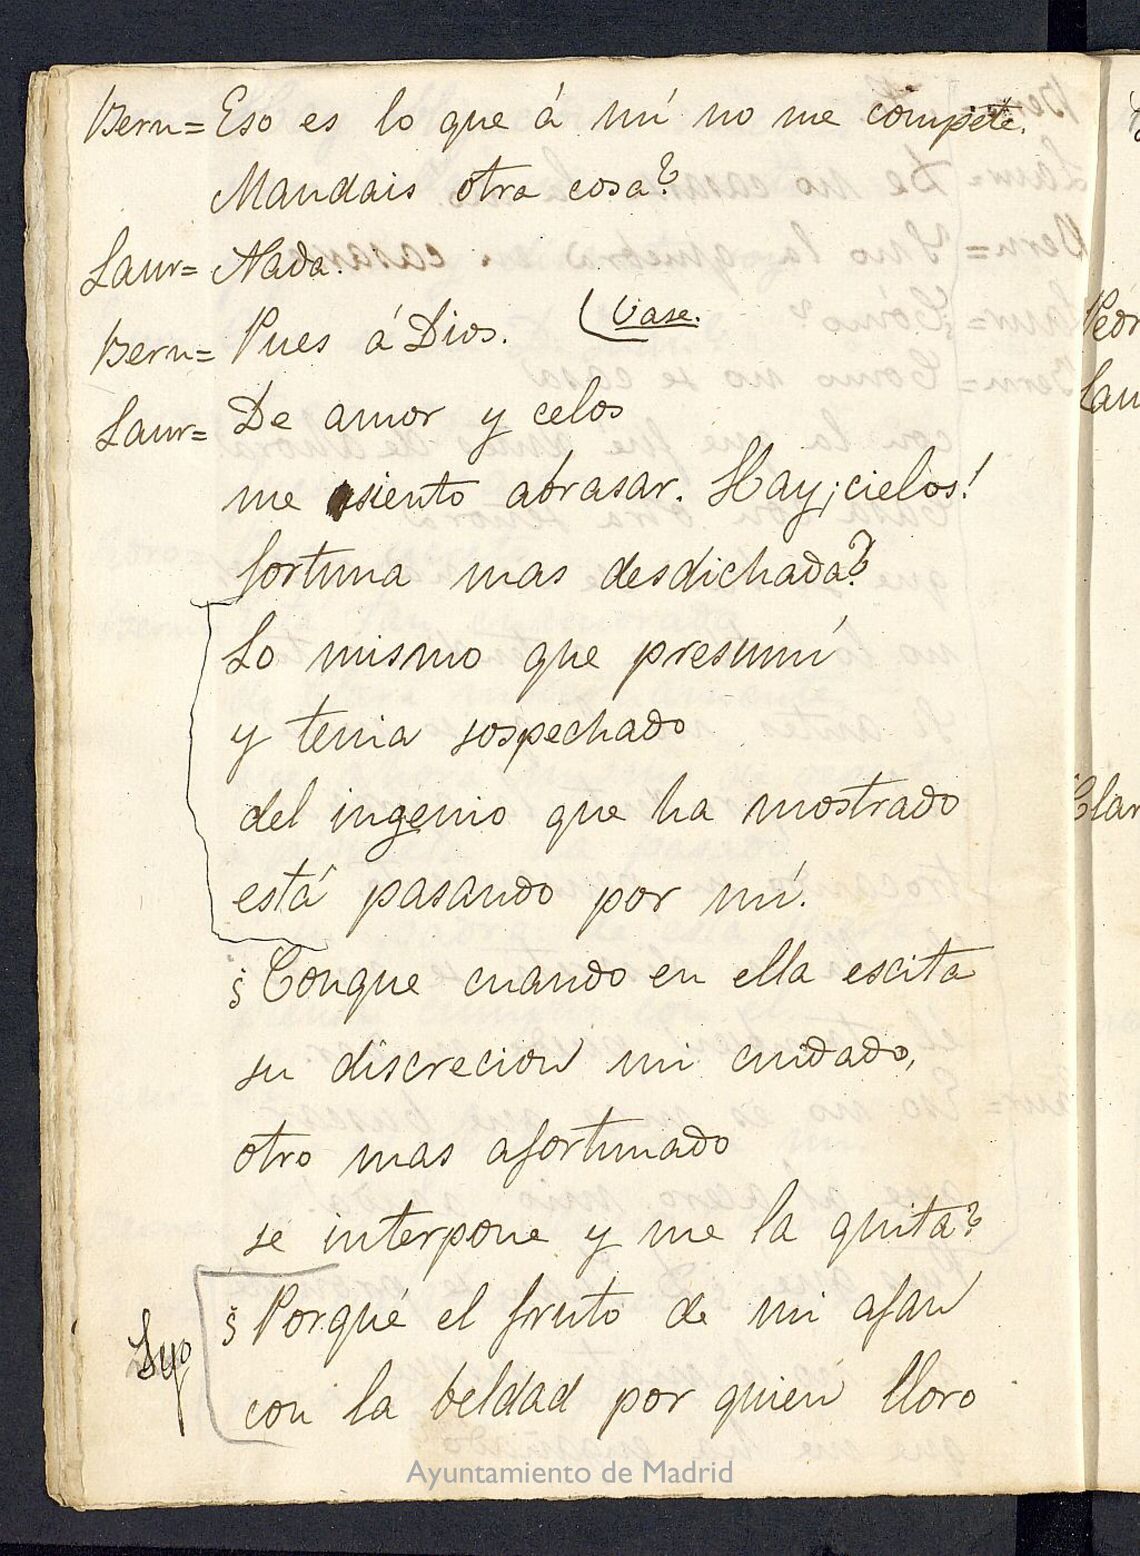 Bern= Eso es lo que á mí no me compete.
Mandais otra cosa?
Laur= Nada.
Bern= Pues á Dios. (Vase.
Laur= De amor y celos
me siento abrasar. Hay ¡cielos!
fortuna mas desdichada?
Lo mismo que presumí
y tenia sospechado
del ingenio que ha mostrado
está pasando por mí.
¿Conque cuando en ella escita
su discrecion mi cuidado,
otro mas afortunado
se interpone y me la quita?
¿Porqué el fruto de mi afan
con la beldad por quien lloro
Ayuntamiento de Madrid
Pedr
Lau
Clar